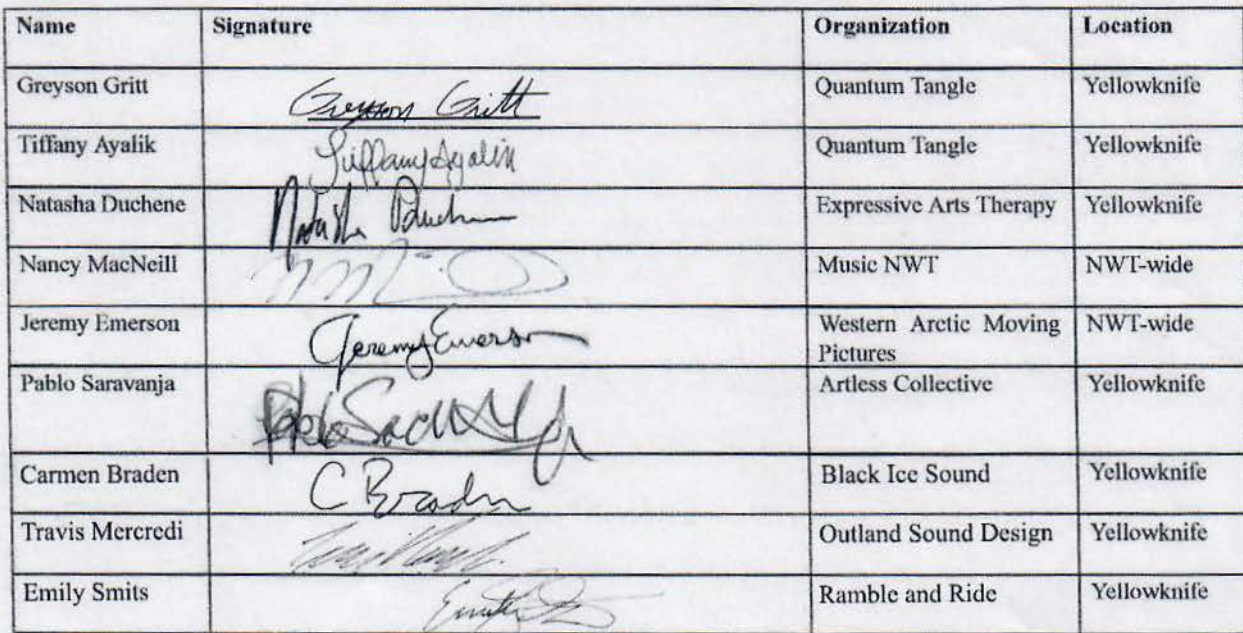 Name Signature Organization Location
Greyson Gritt Greyson Gritt Quantum Tangle Yellowknife
Tiffany Ayalik Tiffany Ayalik Quantum Tangle Yellowknife
Natasha Duchene Natasha Duchene Expressive Arts Therapy Yellowknife
Nancy MacNeill Music NWT NWT-wide
Jeremy Emerson Jeremy Emerson Western Arctic Moving NWT-wide
Pictures
Pablo Saravanja Artless Collective Yellowknife
Carmen Braden C Braden Black Ice Sound Yellowknife
Travis Mercredi Outland Sound Design Yellowknife
Emily Smits Ramble and Ride Yellowknife